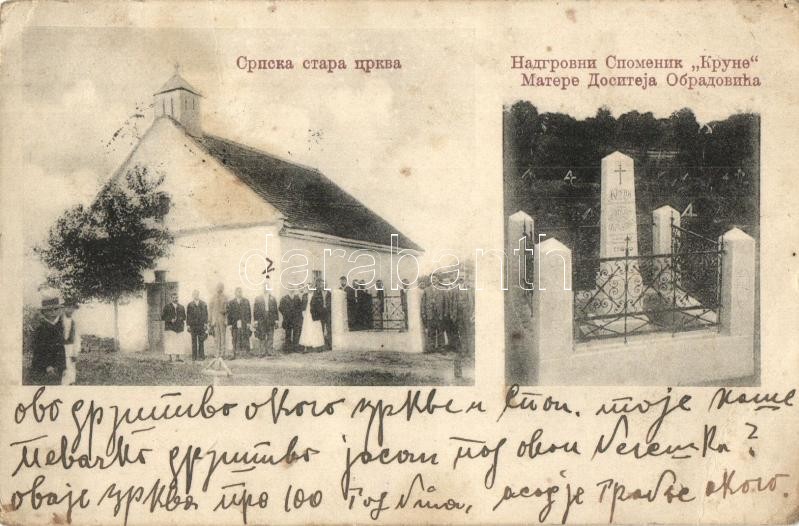 Српска стара црква
Надгровни Споменик „Круне“
Матере Доситеја Обрадовића
Круни
darabanth
ово друштво около зркве и Спом. то је наше
певачко друштво јасам под овом белешка?
ова је зрква про 100 год била, а сад је гробље около.